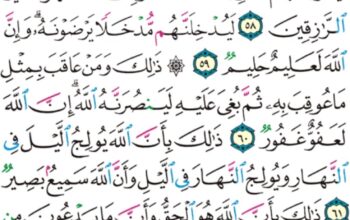 ٱلرَّٰزِقِينَ ٥٨ لَيُدْخِلَنَّهُم مُّدْخَلًا يَرْضَوْنَهُۥ ۗ وَإِنَّ
ٱللَّهَ لَعَلِيمٌ حَلِيمٌ ٥٩ ۞ ذَٰلِكَ وَمَنْ عَاقَبَ بِمِثْلِ
مَا عُوقِبَ بِهِۦ ثُمَّ بُغِىَ عَلَيْهِ لَيَنصُرَنَّهُ ٱللَّهُ ۗ إِنَّ ٱللَّهَ
لَعَفُوٌّ غَفُورٌ ٦٠ ذَٰلِكَ بِأَنَّ ٱللَّهَ يُولِجُ ٱلَّيْلَ فِى
ٱلنَّهَارِ وَيُولِجُ ٱلنَّهَارَ فِى ٱلَّيْلِ وَأَنَّ ٱللَّهَ سَمِيعٌۢ بَصِيرٌ
٦١ ذَٰلِكَ بِأَنَّ ٱللَّهَ هُوَ ٱلْحَقُّ وَأَنَّ مَا يَدْعُونَ مِن